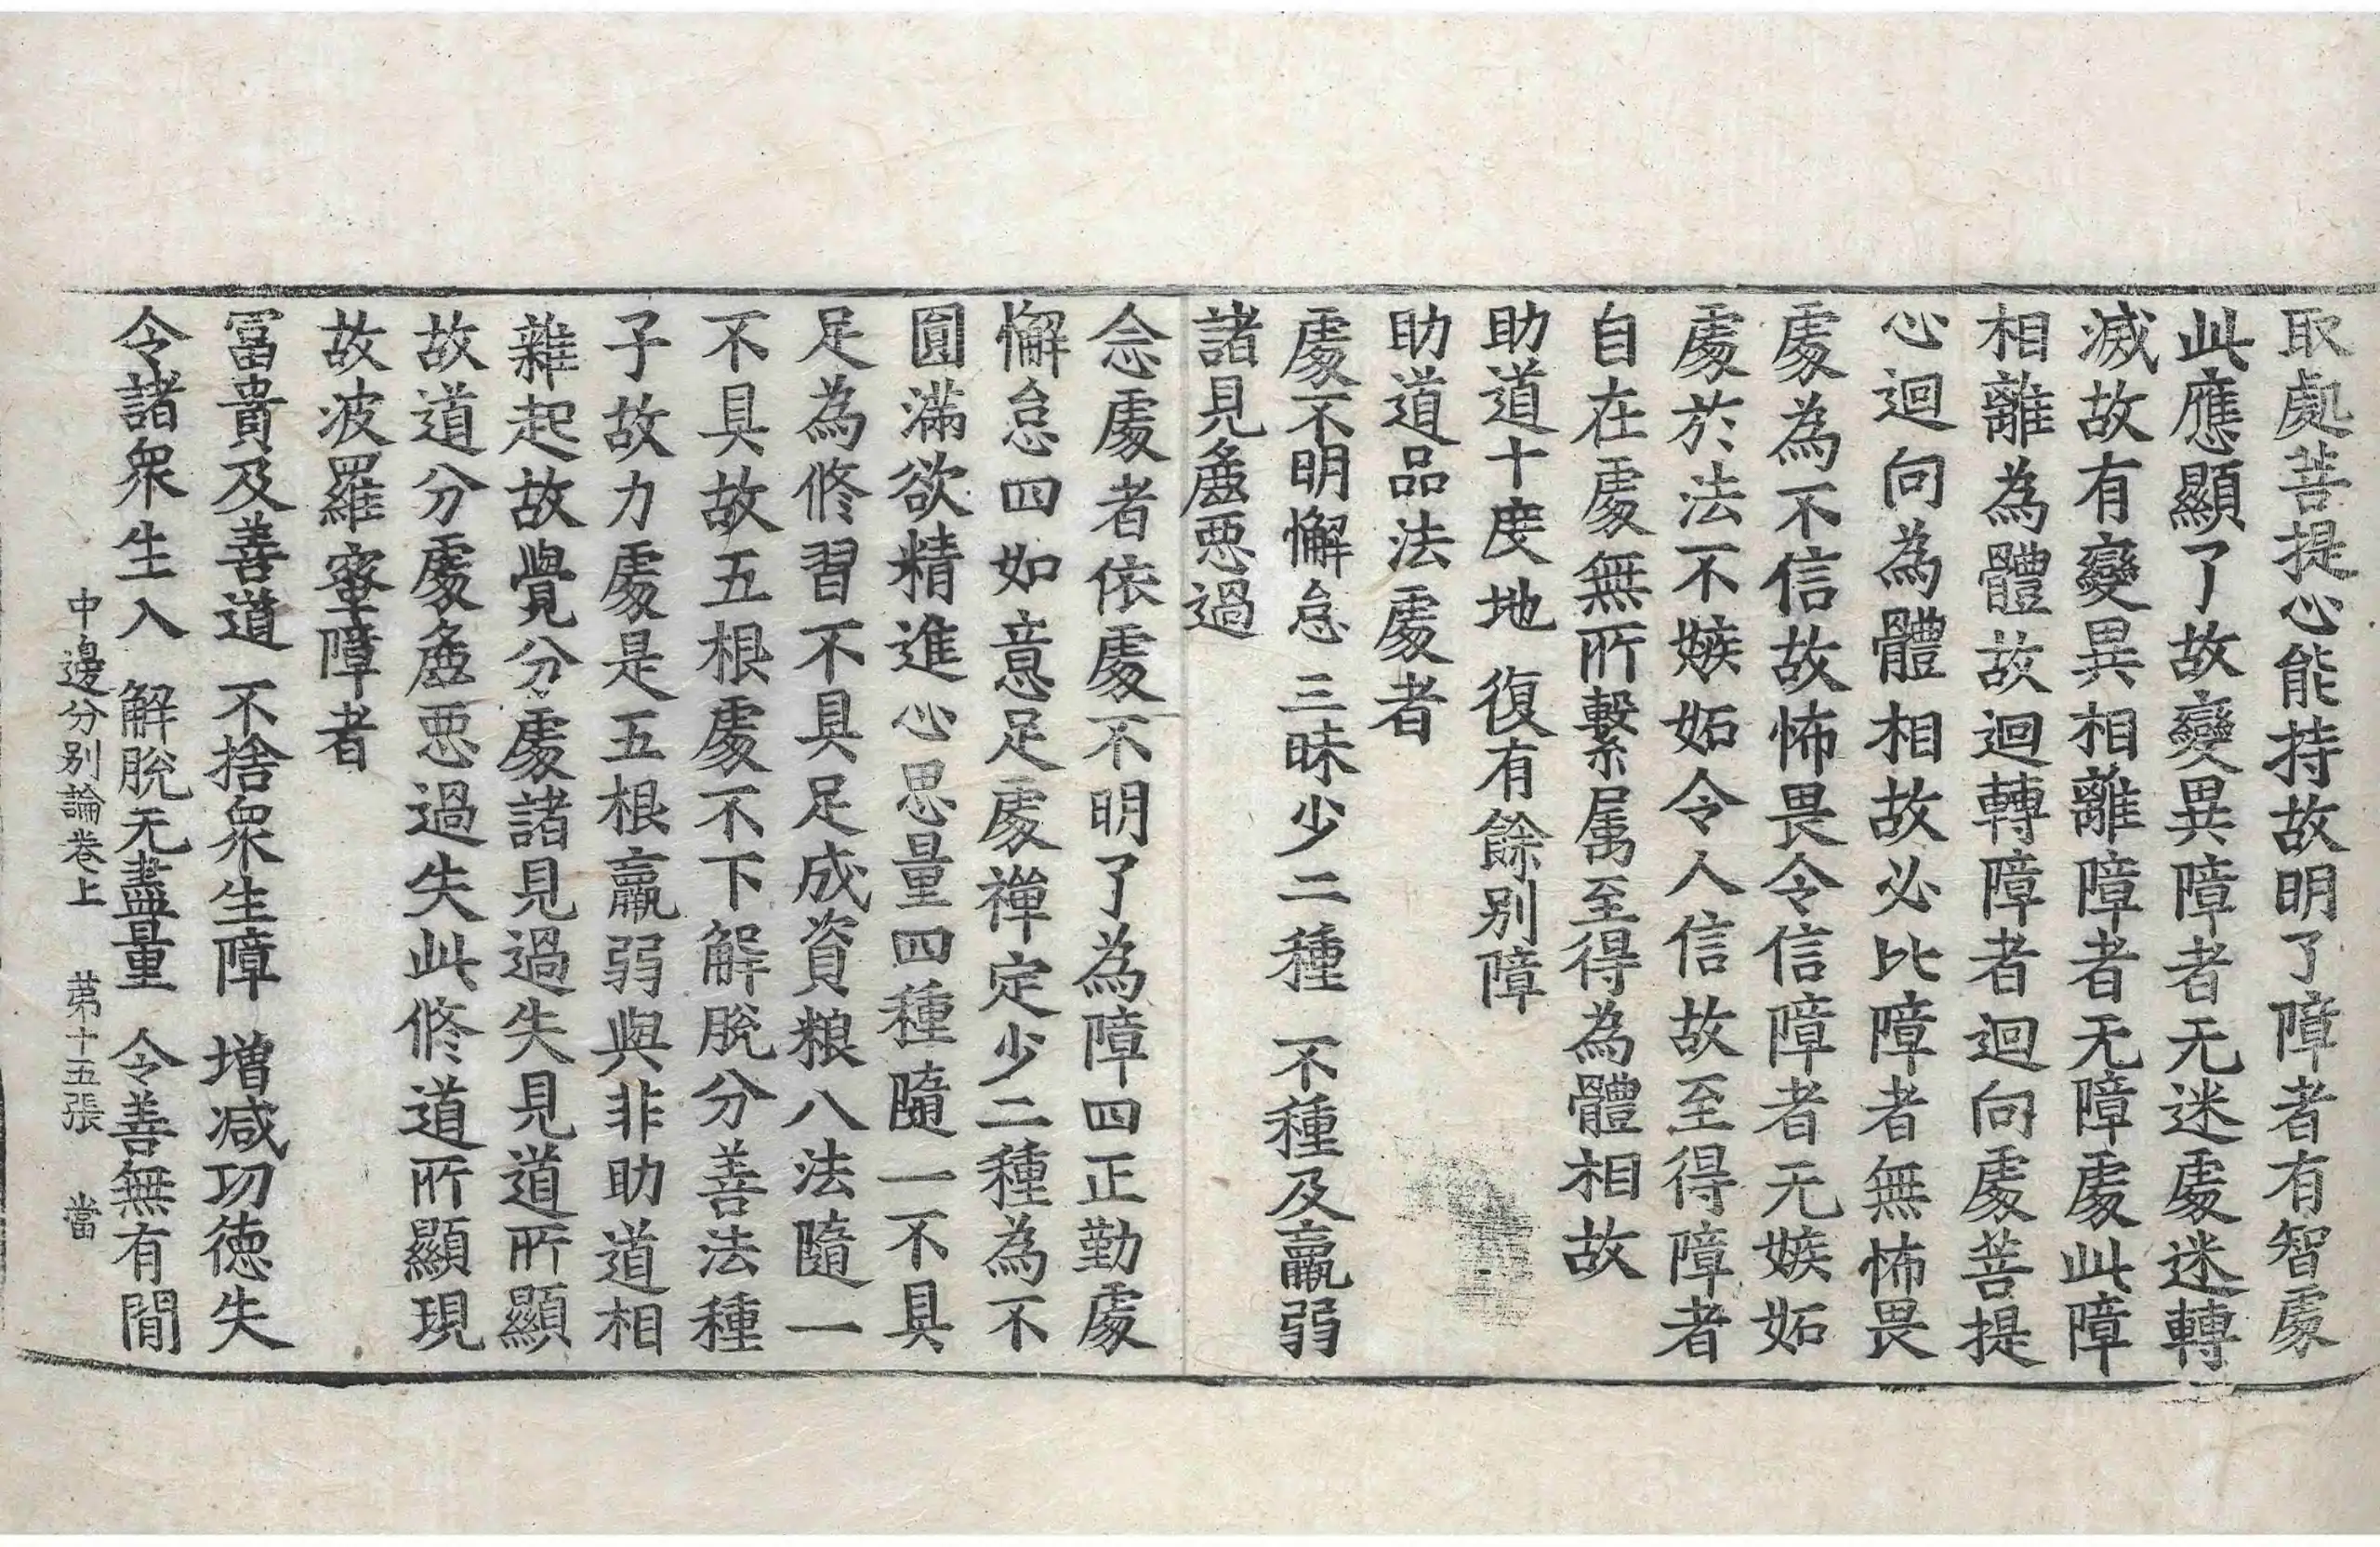 取處菩提心能持故明了障者有智處
此應顯了故變異障者无迷處迷轉
滅故有變異相離障者无障處此障
相離為體故迴轉障者迴向處菩提
心迴向為體相故必比障者無怖畏
處為不信故怖畏令信障者无嫉妬
處於法不嫉妬令人信故至得障者
自在處無所繫属至得為體相故
助道十度地 復有餘別障
助道品法處者
處不明懈怠 三昧少二種 不種及羸弱
諸見麁惡過
念處者依處不明了為障四正勤處
懈怠四如意足處禪定少二種為不
圓滿欲精進心思量四種隨一不具
足為修習不具足成資粮八法隨一
不具故五根處不下解脫分善法種
子故力處是五根羸弱與非助道相
雜起故覺分處諸見過失見道所顯
故道分處麁惡過失此修道所顯現
故波羅蜜障者
冨貴及善道 不捨衆生障 增減功德失
令諸衆生入 解脫无盡量 令善無有間
中邊分別論卷上 苐十五張 當